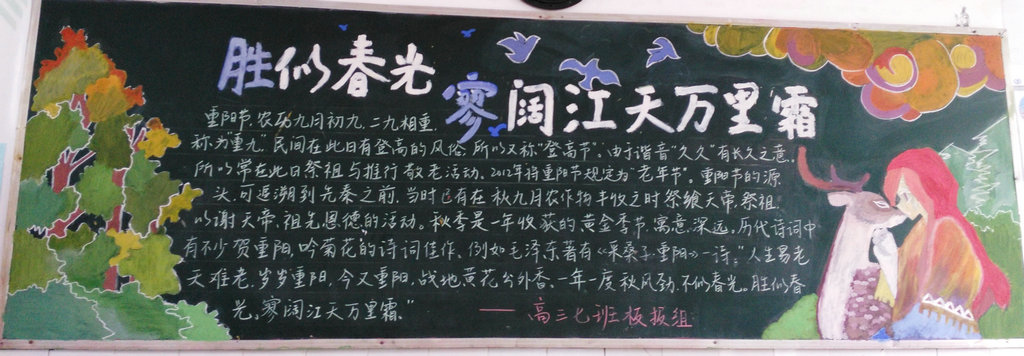 胜似春光
寥阔江天万里霜
重阳节,农历九月初九,二九相重,
称为"重九"。民间在此日有登高的风俗,所以又称"登高节"。由于谐音"久久"有长久之意,
所以常在此日祭祖与推行敬老活动。2012年将重阳节规定为"老年节"。重阳节的源
头,可追溯到先秦之前,当时已有在秋九月农作物丰收之时祭飨天帝、祭祖,
以谢天帝、祖先恩德的活动。秋季是一年收获的黄金季节,寓意深远。历代诗词中
有不少贺重阳,吟菊花的诗词佳作,例如毛泽东著有《采桑子·重阳》一诗:"人生易老
天难老,岁岁重阳,今又重阳,战地黄花分外香。一年一度秋风劲,不似春光。胜似春
光,寥阔江天万里霜。"
——高三七班板报组